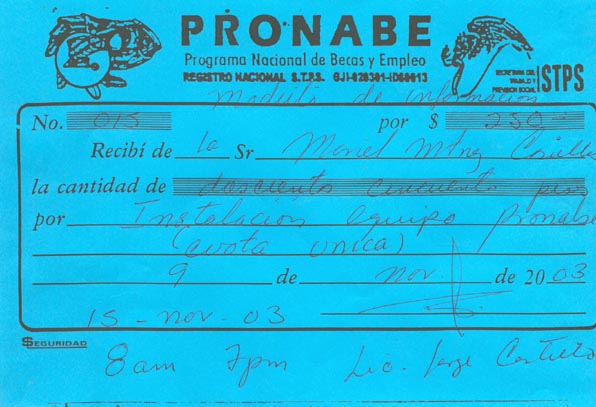 PRONABE
Programa Nacional de Becas y Empleo
REGISTRO NACIONAL S.T.P.S. GJI-020301-ID60013
SECRETARIA DEL TRABAJO Y PREVISION SOCIAL STPS
de informacion
No. 015 por $ 250-
Recibí de la Sr Mariel Mtnz
la cantidad de doscientos cincuenta pesos
por Instalacion equipo Pronabe
(cuota unica)
9 de Nov. de 2003
15 - nov - 03
SEGURIDAD
8am 7pm Lic. Jorge